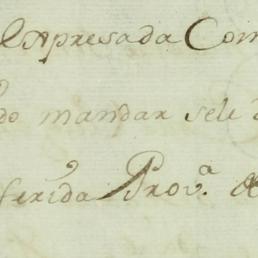 Expresada Com
do mandar sele
ferida Prov.ª